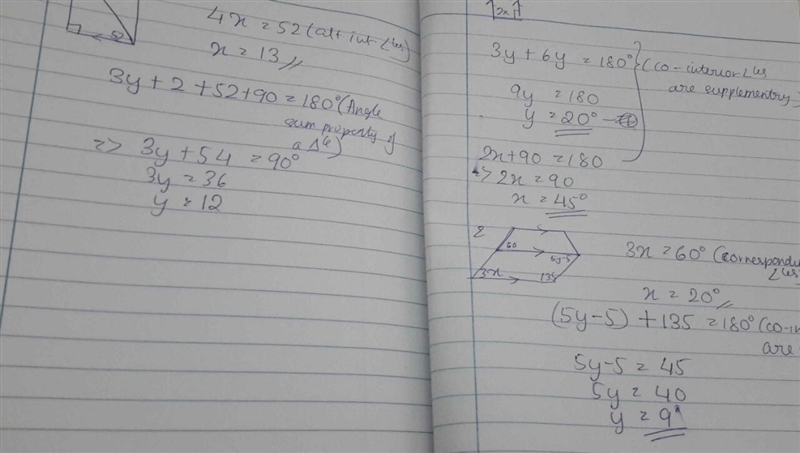 4x = 52 (alt int ∠les)
x = 13
3y + 2 + 52 + 90 = 180° (Angle
sum property of
a Δle)
=> 3y + 54 = 90°
3y = 36
y = 12
2x
3y + 6y = 180° (co-interior ∠les
are supplementry)
9y = 180
y = 20°
2x + 90 = 180
=> 2x = 90
x = 45°
60
5y-5
3x
135
3x = 60° (correspondi
∠les)
x = 20°
(5y-5) + 135 = 180° (co-in
are
5y-5 = 45
5y = 40
y = 9